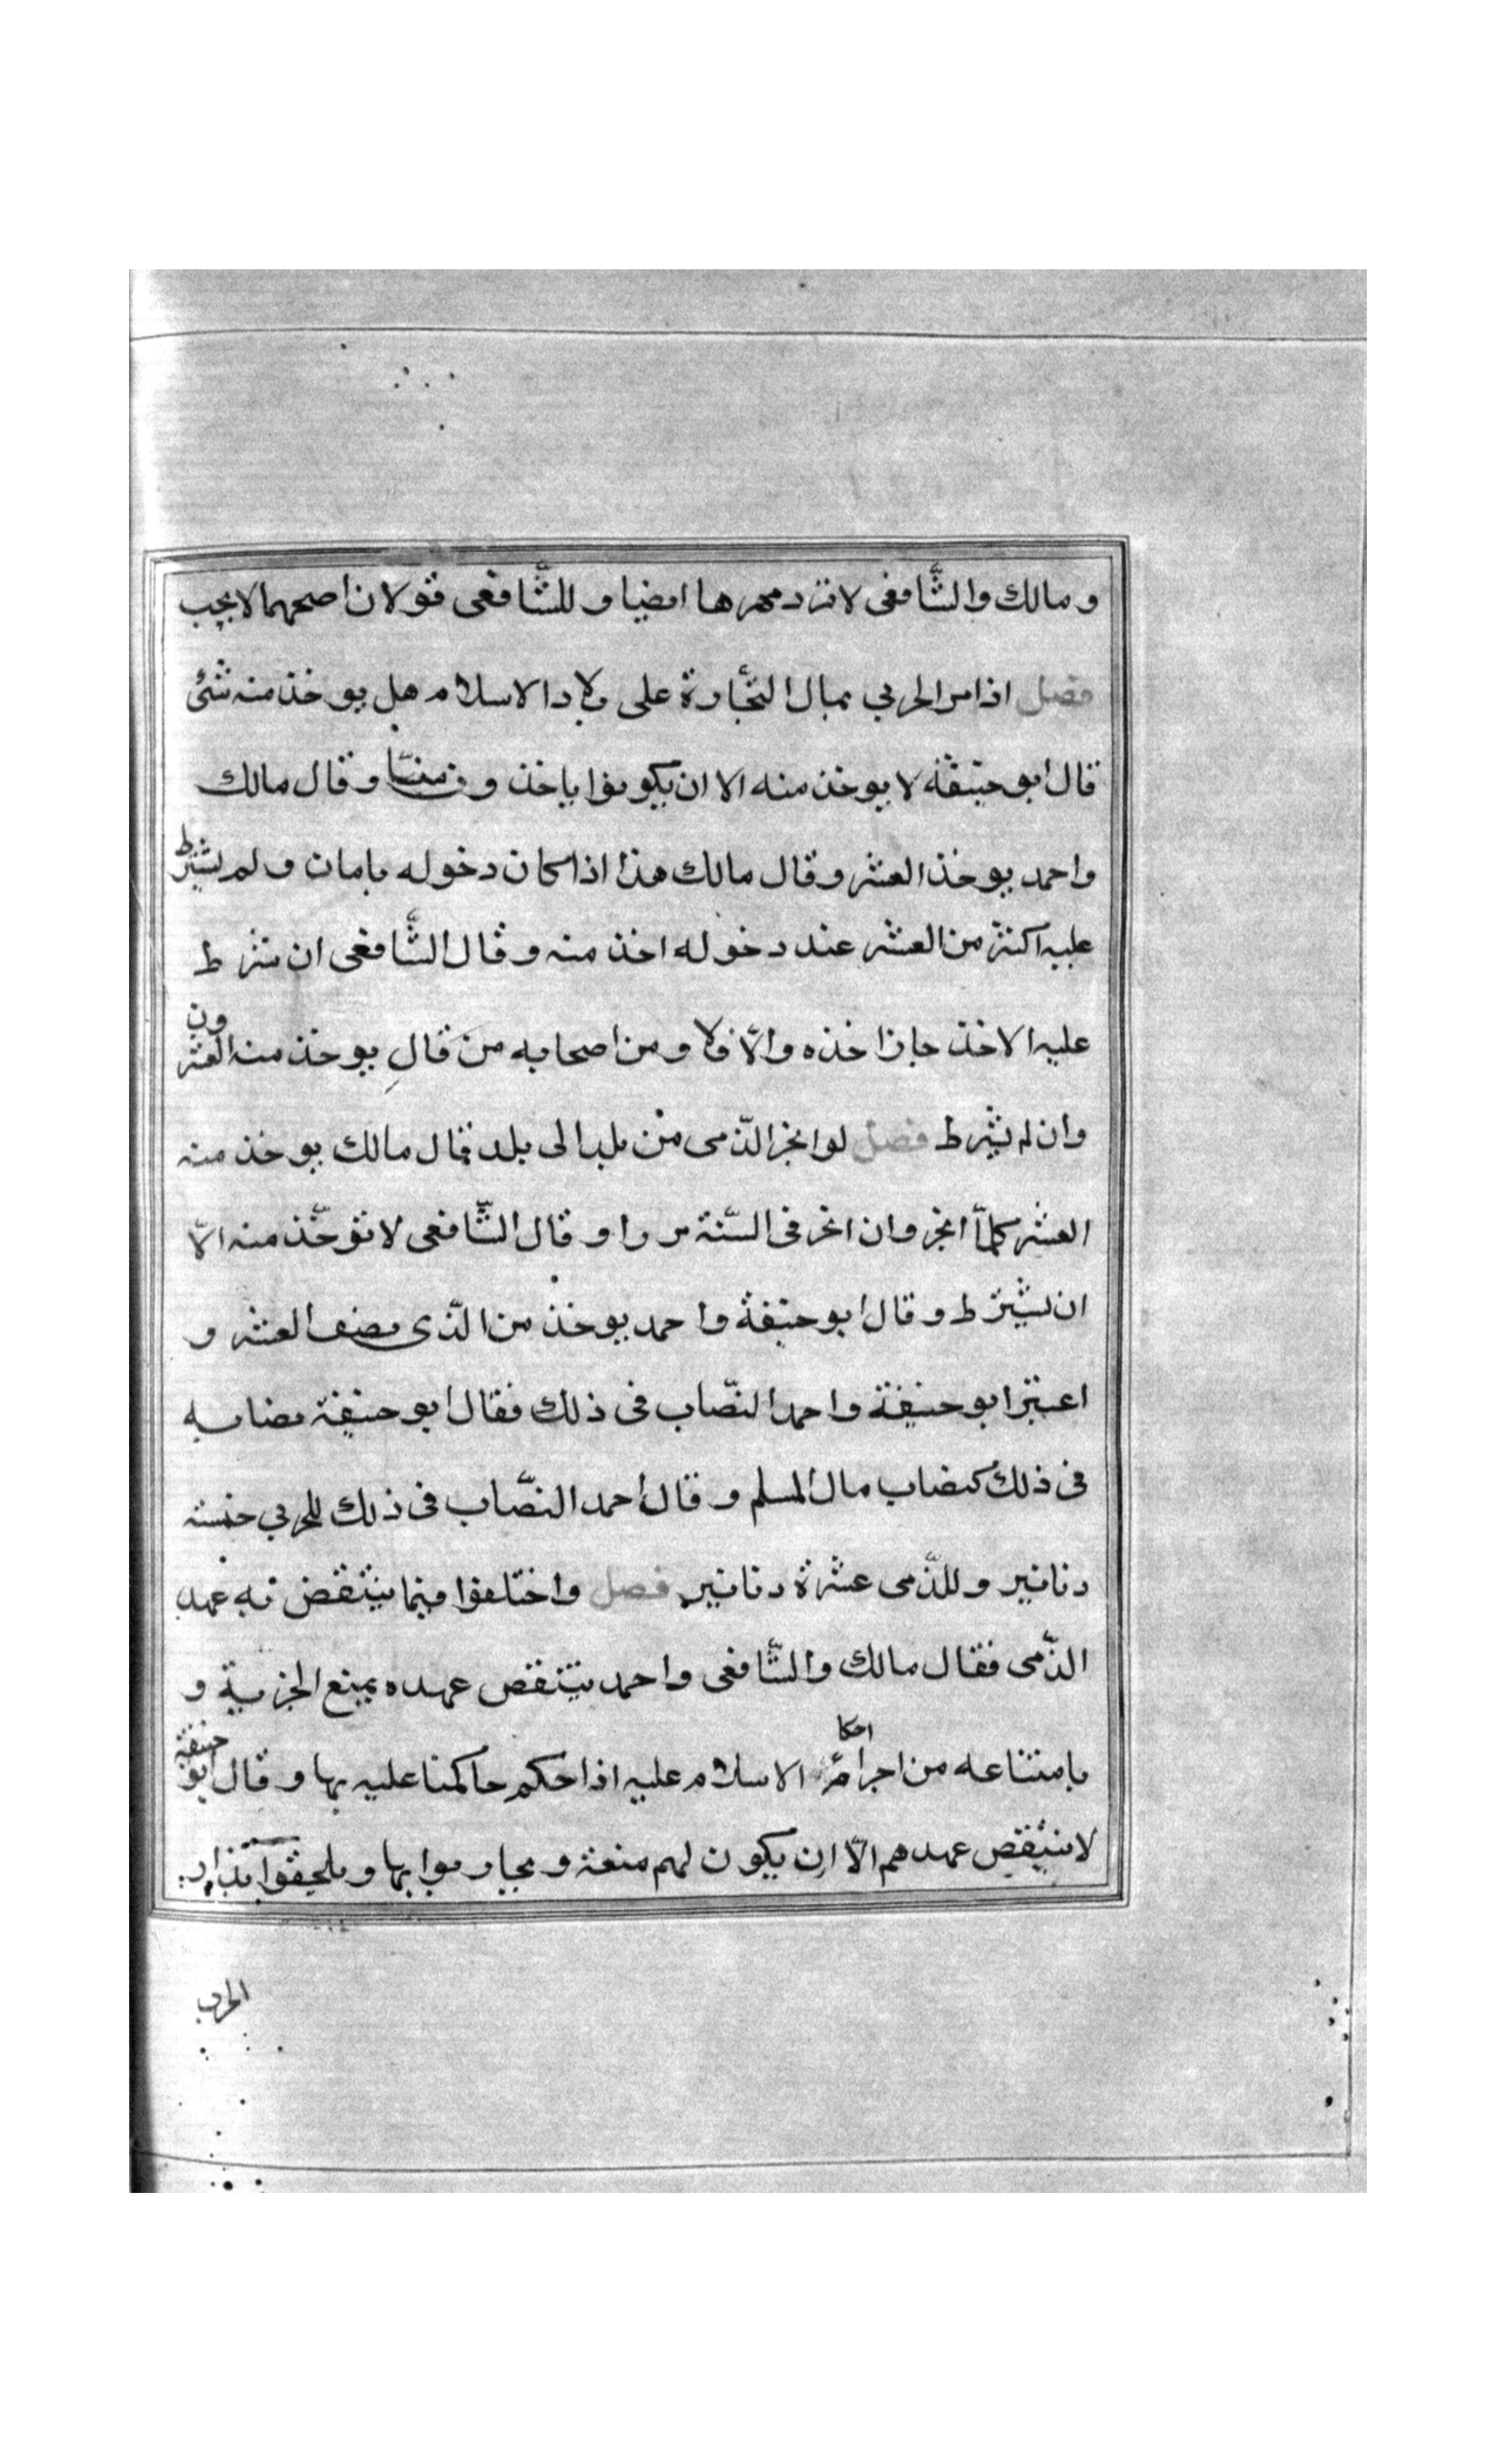 ومالك والشّافعى لا ترد مهرها ايضا و للشّافعى قولان اصحهما لا يجب
فصل اذا مر الحربي بمال التجارة على بلاد الاسلام هل يوخذ منه شئ
قال ابو حنيفة لا يوخذ منه الا ان يكونوا ياخذون منّا وقال مالك
واحمد يوخذ العشر وقال مالك هذا اذا كان دخوله بامان ولم يشترط
عليه اكثر من العشر عند دخوله اخذ منه وقال الشّافعى ان شرط
عليه الاخذ جاز اخذه والّا فلا ومن اصحابه من قال يوخذ منه العشر
وان لم يشرط فصل لو اتجر الذّمى من بلد الى بلد فقال مالك يوخذ منه
العشر كلمّا اتجر وان اتجر فى السّنة مرارا وقال الشّافعى لا توخّذ منه الّا
ان يشترط وقال ابو حنيفة واحمد يوخذ من الذّمى نصف العشر و
اعتبر ابو حنيفة واحمد النصّاب فى ذلك فقال ابو حنيفة نصابه
فى ذلك كنصاب مال المسلم وقال احمد النصّاب فى ذلك للحربي خمسة
دنانير وللذّمى عشرة دنانير فصل واختلفوا فيما ينتقض به عهد
الذّمى فقال مالك والشّافعى واحمد ينتقض عهده بمنع الجزية و
بامتناعه من اجرا احكام الاسلام عليه اذا حكم حاكمنا عليه بها وقال ابو حنيفة
لا ينتقض عهدهم الّا ان يكون لهم منعة و يحاربوا بها ويلحقوا بدار
الحرب